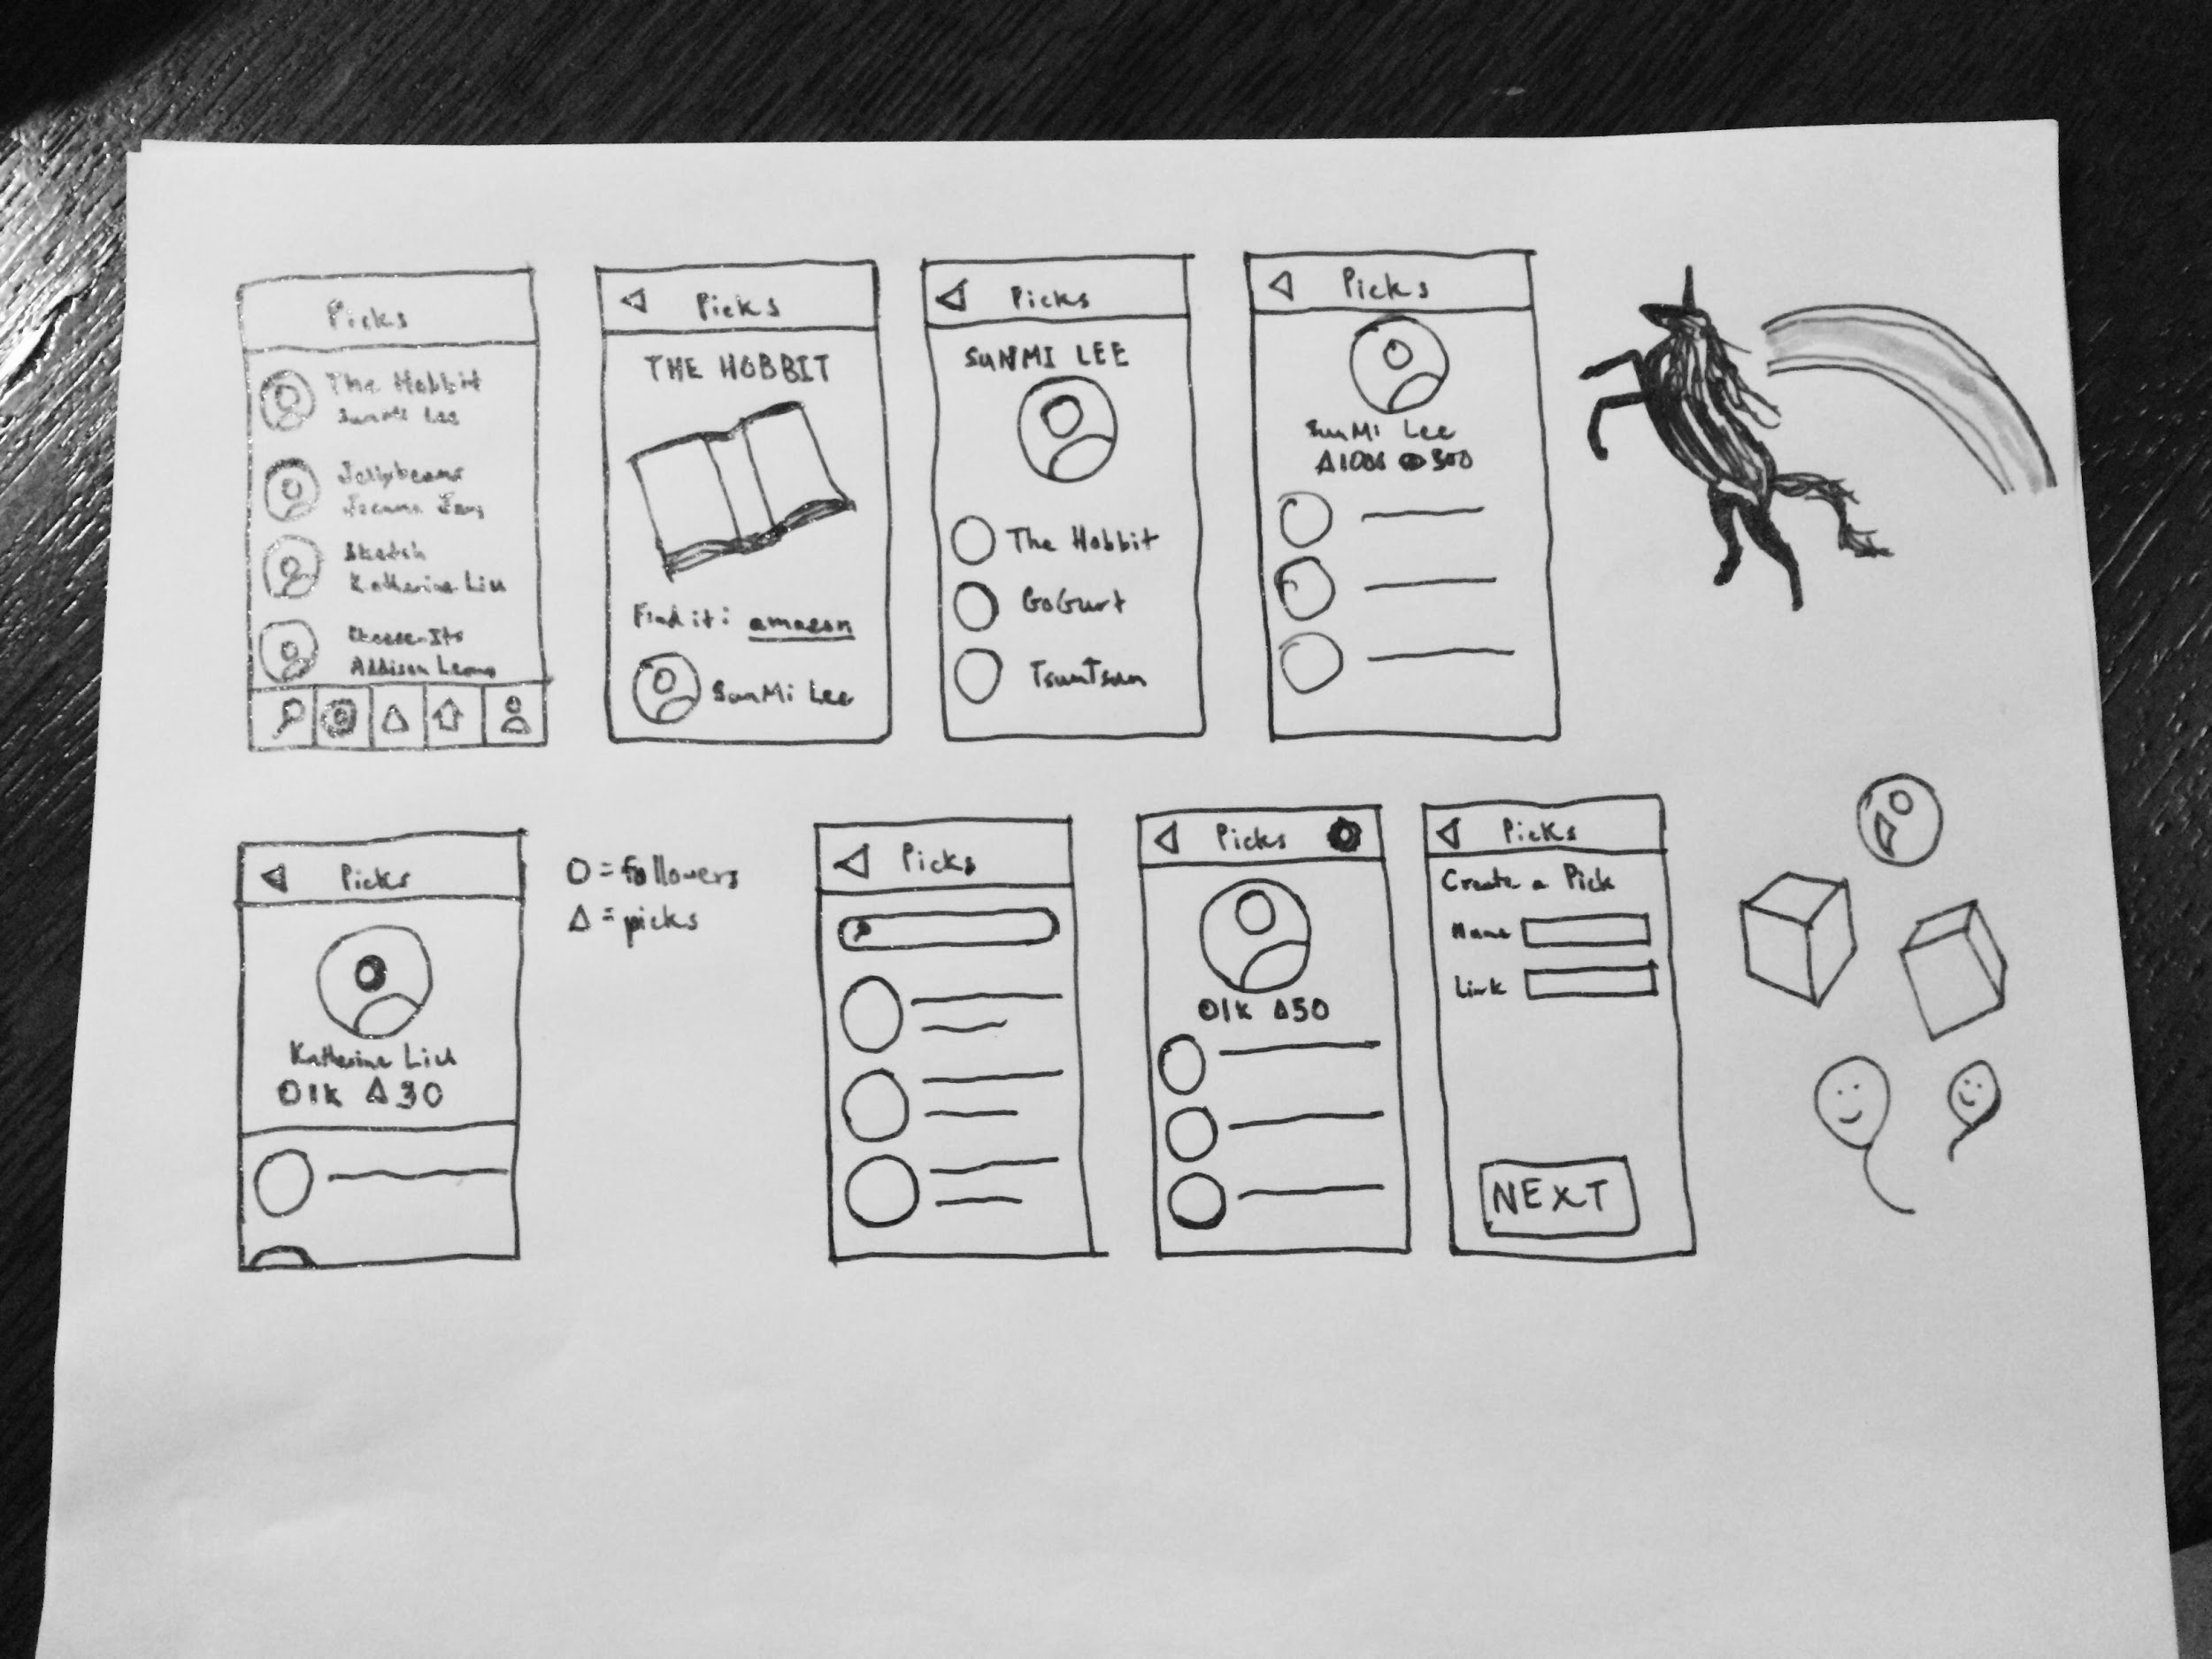 Picks
The Hobbit
SunMi Lee
Jellybeans
Sketch
Katherine Liu
Cheese-Its
Addison Leong
Picks
THE HOBBIT
Find it: amazon
SunMi Lee
Picks
SUNMI LEE
The Hobbit
GoGurt
TsumTsum
Picks
SunMi Lee
300
Picks
Katherine Liu
1K 30
O = followers
Δ = picks
Picks
Picks
1K Δ50
Picks
Create a Pick
Name
Link
NEXT